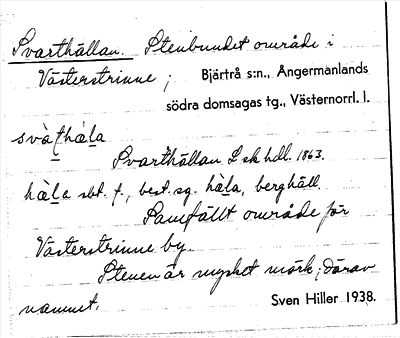 Svarthällan. Stenbundet område i
Västerstrinne; Bjärtrå s:n., Ångermanlands
södra domsagas tg., Västernorrl. l.
svàţhä̀la
Svarthällan L sk hdl. 1863.
hä̀la sbt. f., best. sg. hä̀la, berghäll.
Samfällt område för
Västerstrinne by.
Stenen är mycket mörk; därav
namnet. Sven Hiller 1938.